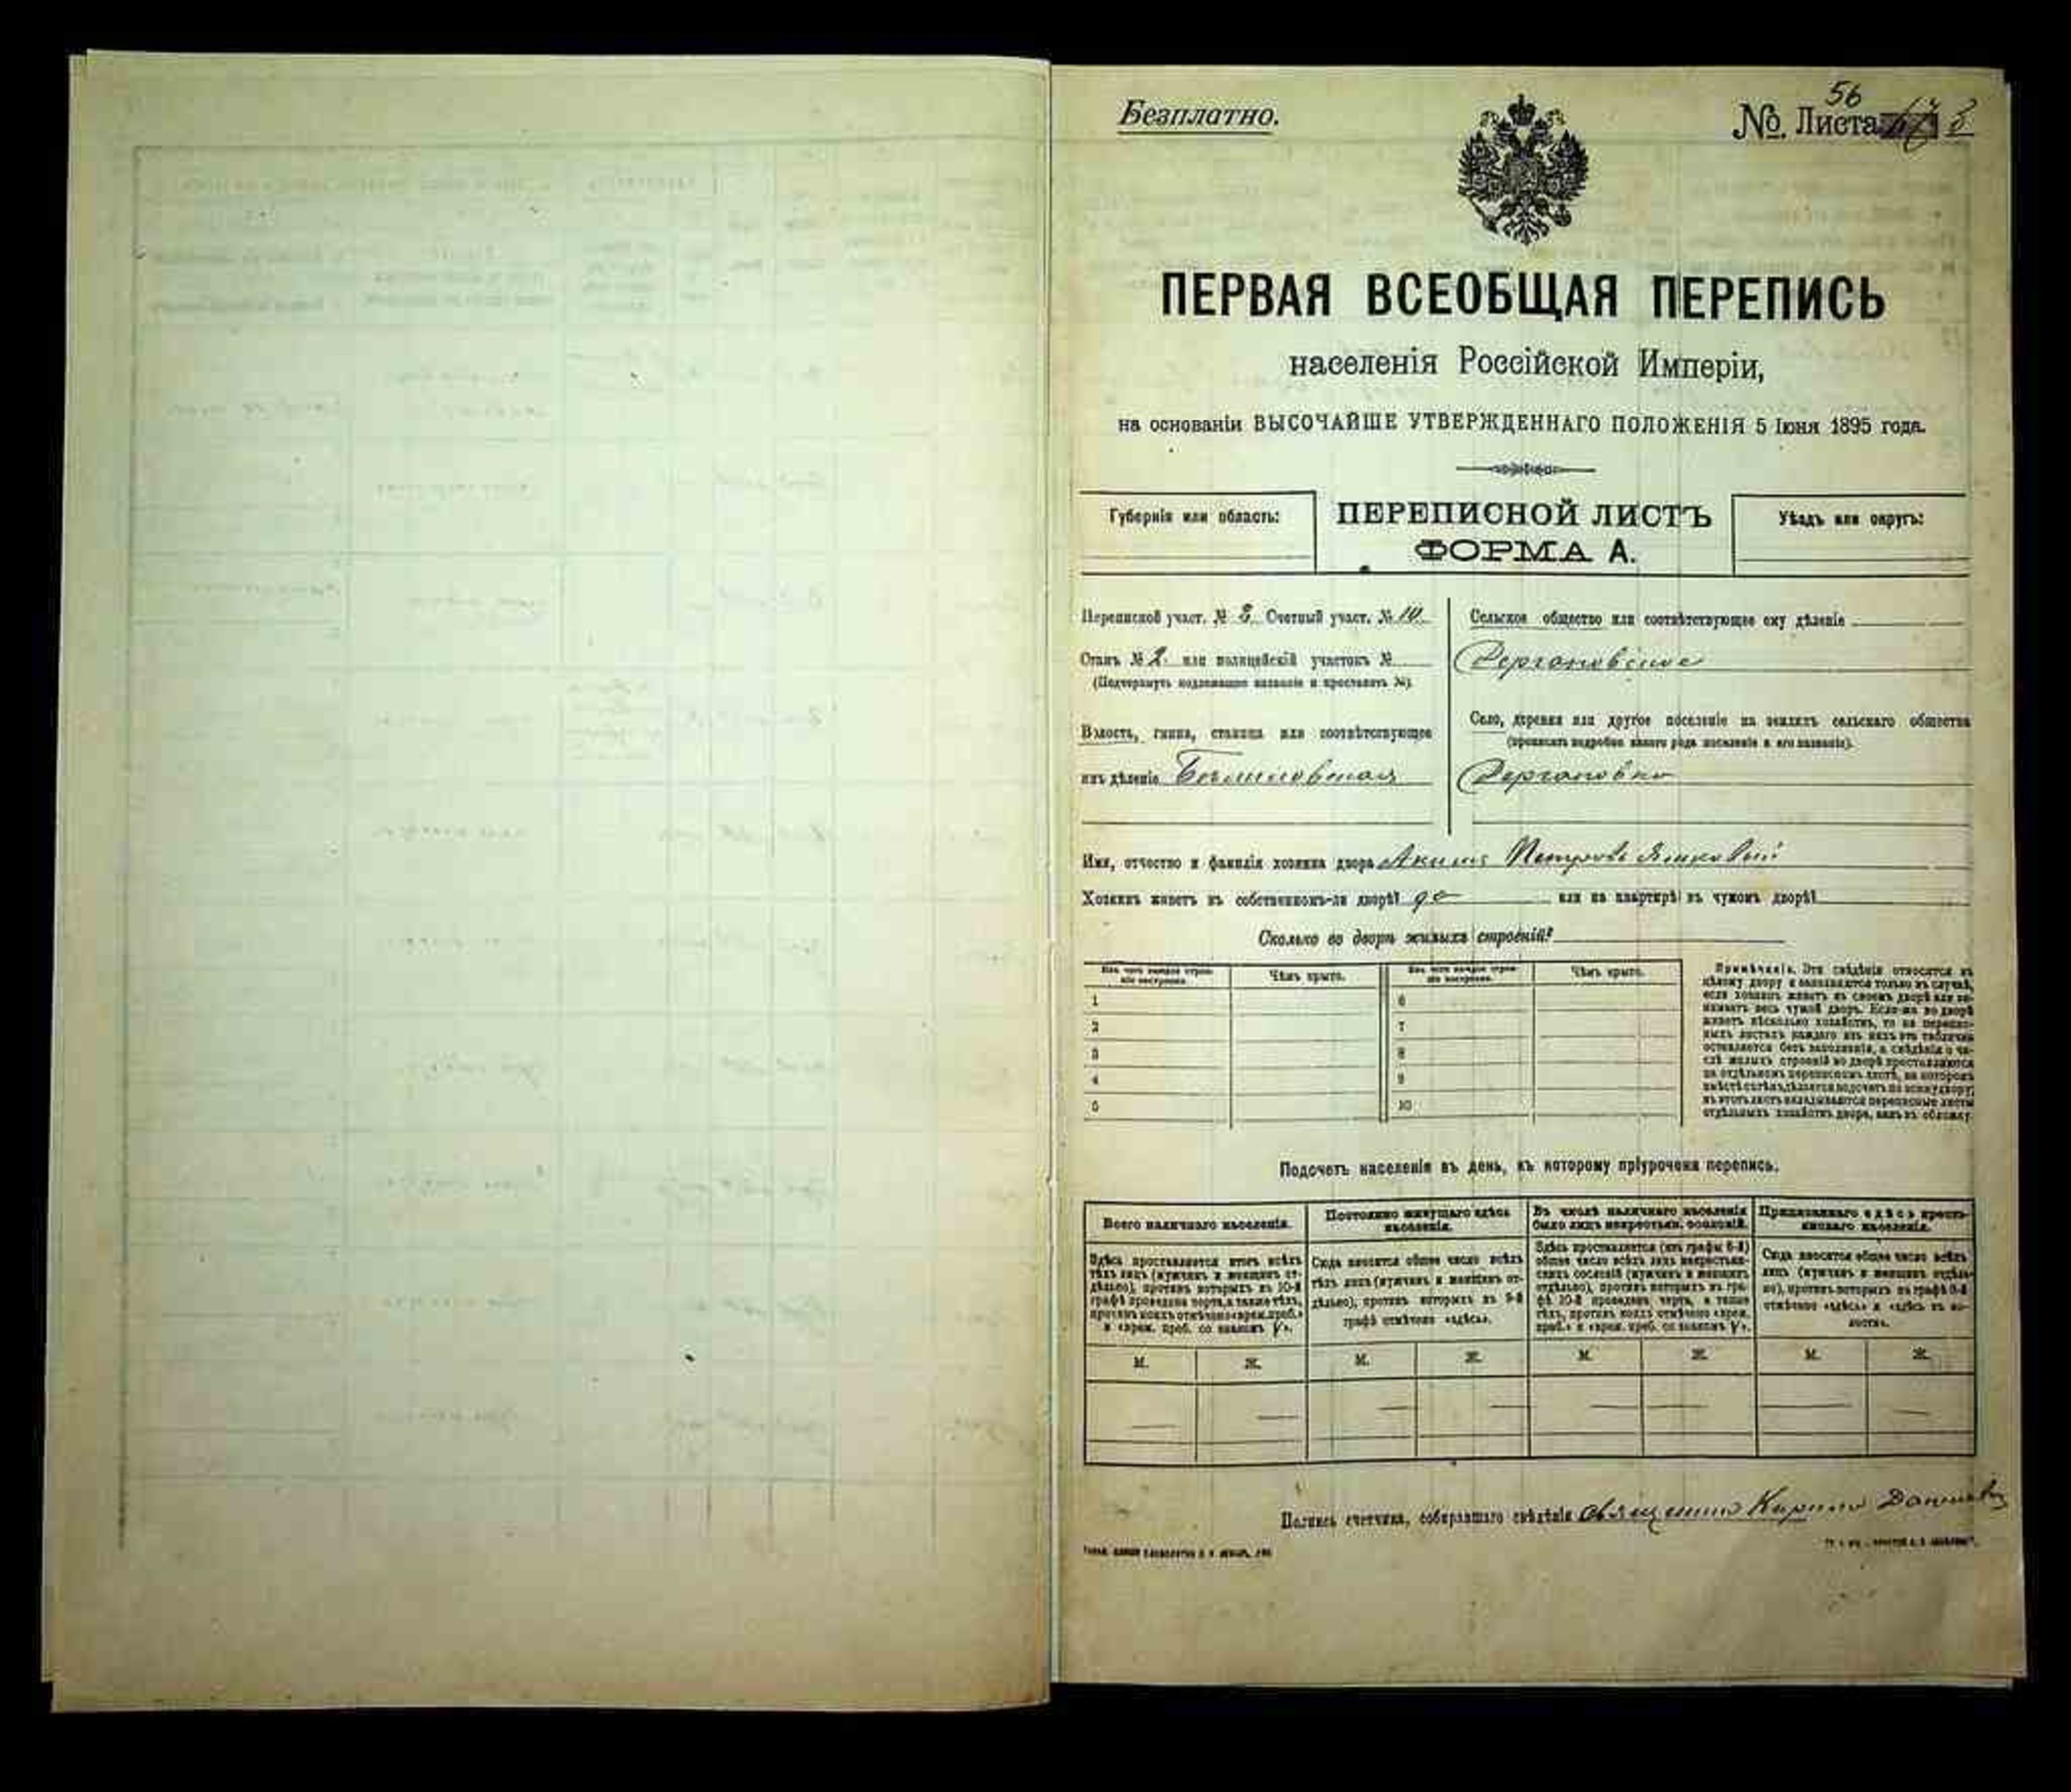 Безплатно.
56
№ Листа
ПЕРВАЯ ВСЕОБЩАЯ ПЕРЕПИСЬ
населенія Россійской Имперіи,
на основаніи ВЫСОЧАЙШЕ УТВЕРЖДЕННАГО ПОЛОЖЕНІЯ 5 Іюня 1895 года.
Губернія или область:
ПЕРЕПИСНОЙ ЛИСТЪ
ФОРМА А.
Уѣздъ или округъ:
Переписной участ. № 3 Счетный участ. № 10
Станъ № 2 или полицейскій участокъ №
(Подчеркнуть надлежащее названіе и проставить №)
Волость, гмина, станица или соотвѣтствующее
имъ дѣленіе
Сельское общество или соотвѣтствующее ему дѣленіе
Село, деревня или другое поселеніе на земляхъ сельскаго общества
(прописать подробно какого рода поселеніе и его названіе).
Имя, отчество и фамилія хозяина двора Акимъ Петровъ
Хозяинъ живетъ въ собственномъ-ли дворѣ? да или на квартирѣ въ чужомъ дворѣ?
Сколько во дворѣ жилыхъ строеній?
Изъ чего каждое строе-
ніе построено.
Чѣмъ крыто.
Изъ чего каждое строе-
ніе построено.
Чѣмъ крыто.
1 6
2 7
3 8
4 9
5 10
Примѣчаніе. Эти свѣдѣнія относятся къ
цѣлому двору и заполняются только въ случаѣ,
если хозяинъ живетъ въ своемъ дворѣ или за-
нимаетъ весь чужой дворъ. Если-же во дворѣ
живетъ нѣсколько хозяйствъ, то на перепис-
ныхъ листахъ каждаго изъ нихъ эта табличка
оставляется безъ заполненія, а свѣдѣнія о чи-
слѣ жилыхъ строеній во дворѣ проставляются
на отдѣльномъ переписномъ листѣ, на которомъ
вмѣстѣ съ тѣмъ дѣлается подсчетъ по всему двору;
въ этотъ листъ вкладываются переписные листы
отдѣльныхъ хозяйствъ двора, какъ въ обложку.
Подсчетъ населенія въ день, къ которому пріурочена перепись.
Всего наличнаго населенія.
Здѣсь проставляется итогъ всѣхъ
тѣхъ лицъ (мужчинъ и женщинъ от-
дѣльно), противъ которыхъ въ 10-й
графѣ проведена черта, а также тѣхъ,
противъ коихъ отмѣчено «врем. проб.»
и «врем. проб. со знакомъ V».
Постоянно живущаго здѣсь
населенія.
Сюда вносится общее число всѣхъ
тѣхъ лицъ (мужчинъ и женщинъ от-
дѣльно), противъ которыхъ въ 9-й
графѣ отмѣчено «здѣсь».
Въ числѣ наличнаго населенія
было лицъ некрестьян. сословій.
Здѣсь проставляется (изъ графы 6-й)
общее число всѣхъ лицъ некрестьян-
скихъ сословій (мужчинъ и женщинъ
отдѣльно), противъ которыхъ въ гра-
фѣ 10-й проведена черта, а также
тѣхъ, противъ коихъ отмѣчено «врем.
проб.» и «врем. проб. со знакомъ V».
Приписаннаго здѣсь кресть-
янскаго населенія.
Сюда вносится общее число всѣхъ
лицъ (мужчинъ и женщинъ отдѣль-
но), противъ которыхъ въ графѣ 8-й
отмѣчено «здѣсь» и «здѣсь въ во-
лости».
М. Ж. М. Ж. М. Ж. М. Ж.
Подпись счетчика, собиравшаго свѣдѣнія